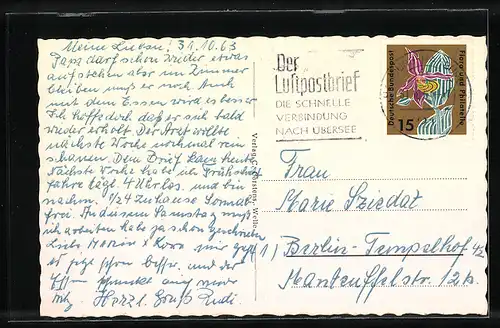 Meine Lieben! 31.10.63
Papa darf schon wieder etwas
aufstehen aber im Zimmer
bleiben muß er noch. Auch
mit dem Essen wird es besser
Ich hoffe doch daß er sich bald
wieder erholt. Der Arzt willte
nächste Woche nochmal rein
schauen. Dein Brief kam heute
Nächste Woche habe ich Frühschicht
fahre tägl. 4 Uhr los. und bin
nachm. 1/2 4 Zuhause Sonnab.
frei. Samstag muß
ich arbeiten habe ja schon geschrieben
Liebs
er jetzt schon besser. und der
schmeckt auch
Herzl. Gruß Rudi.
Verlag C.
Der
Luftpostbrief
DIE SCHNELLE
VERBINDUNG
NACH ÜBERSEE
Flora und Philatelie
Deutsche Bundespost
15
Frau
Marie Sziedat
1) Berlin-Tempelhof 42
Manteuffelstr. 12b.